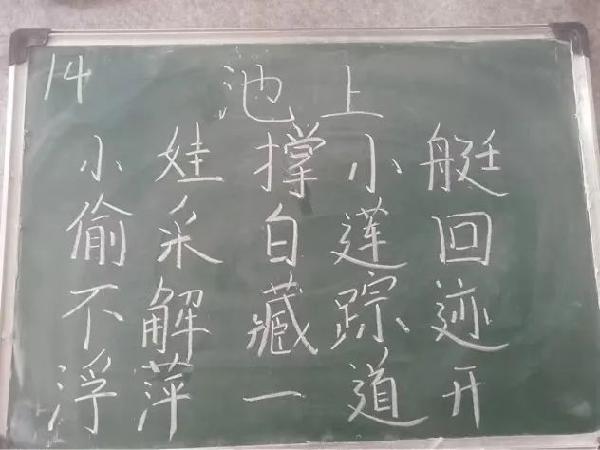 14
池上
小娃撑小艇
偷采白莲回
不解藏踪迹
浮萍一道开